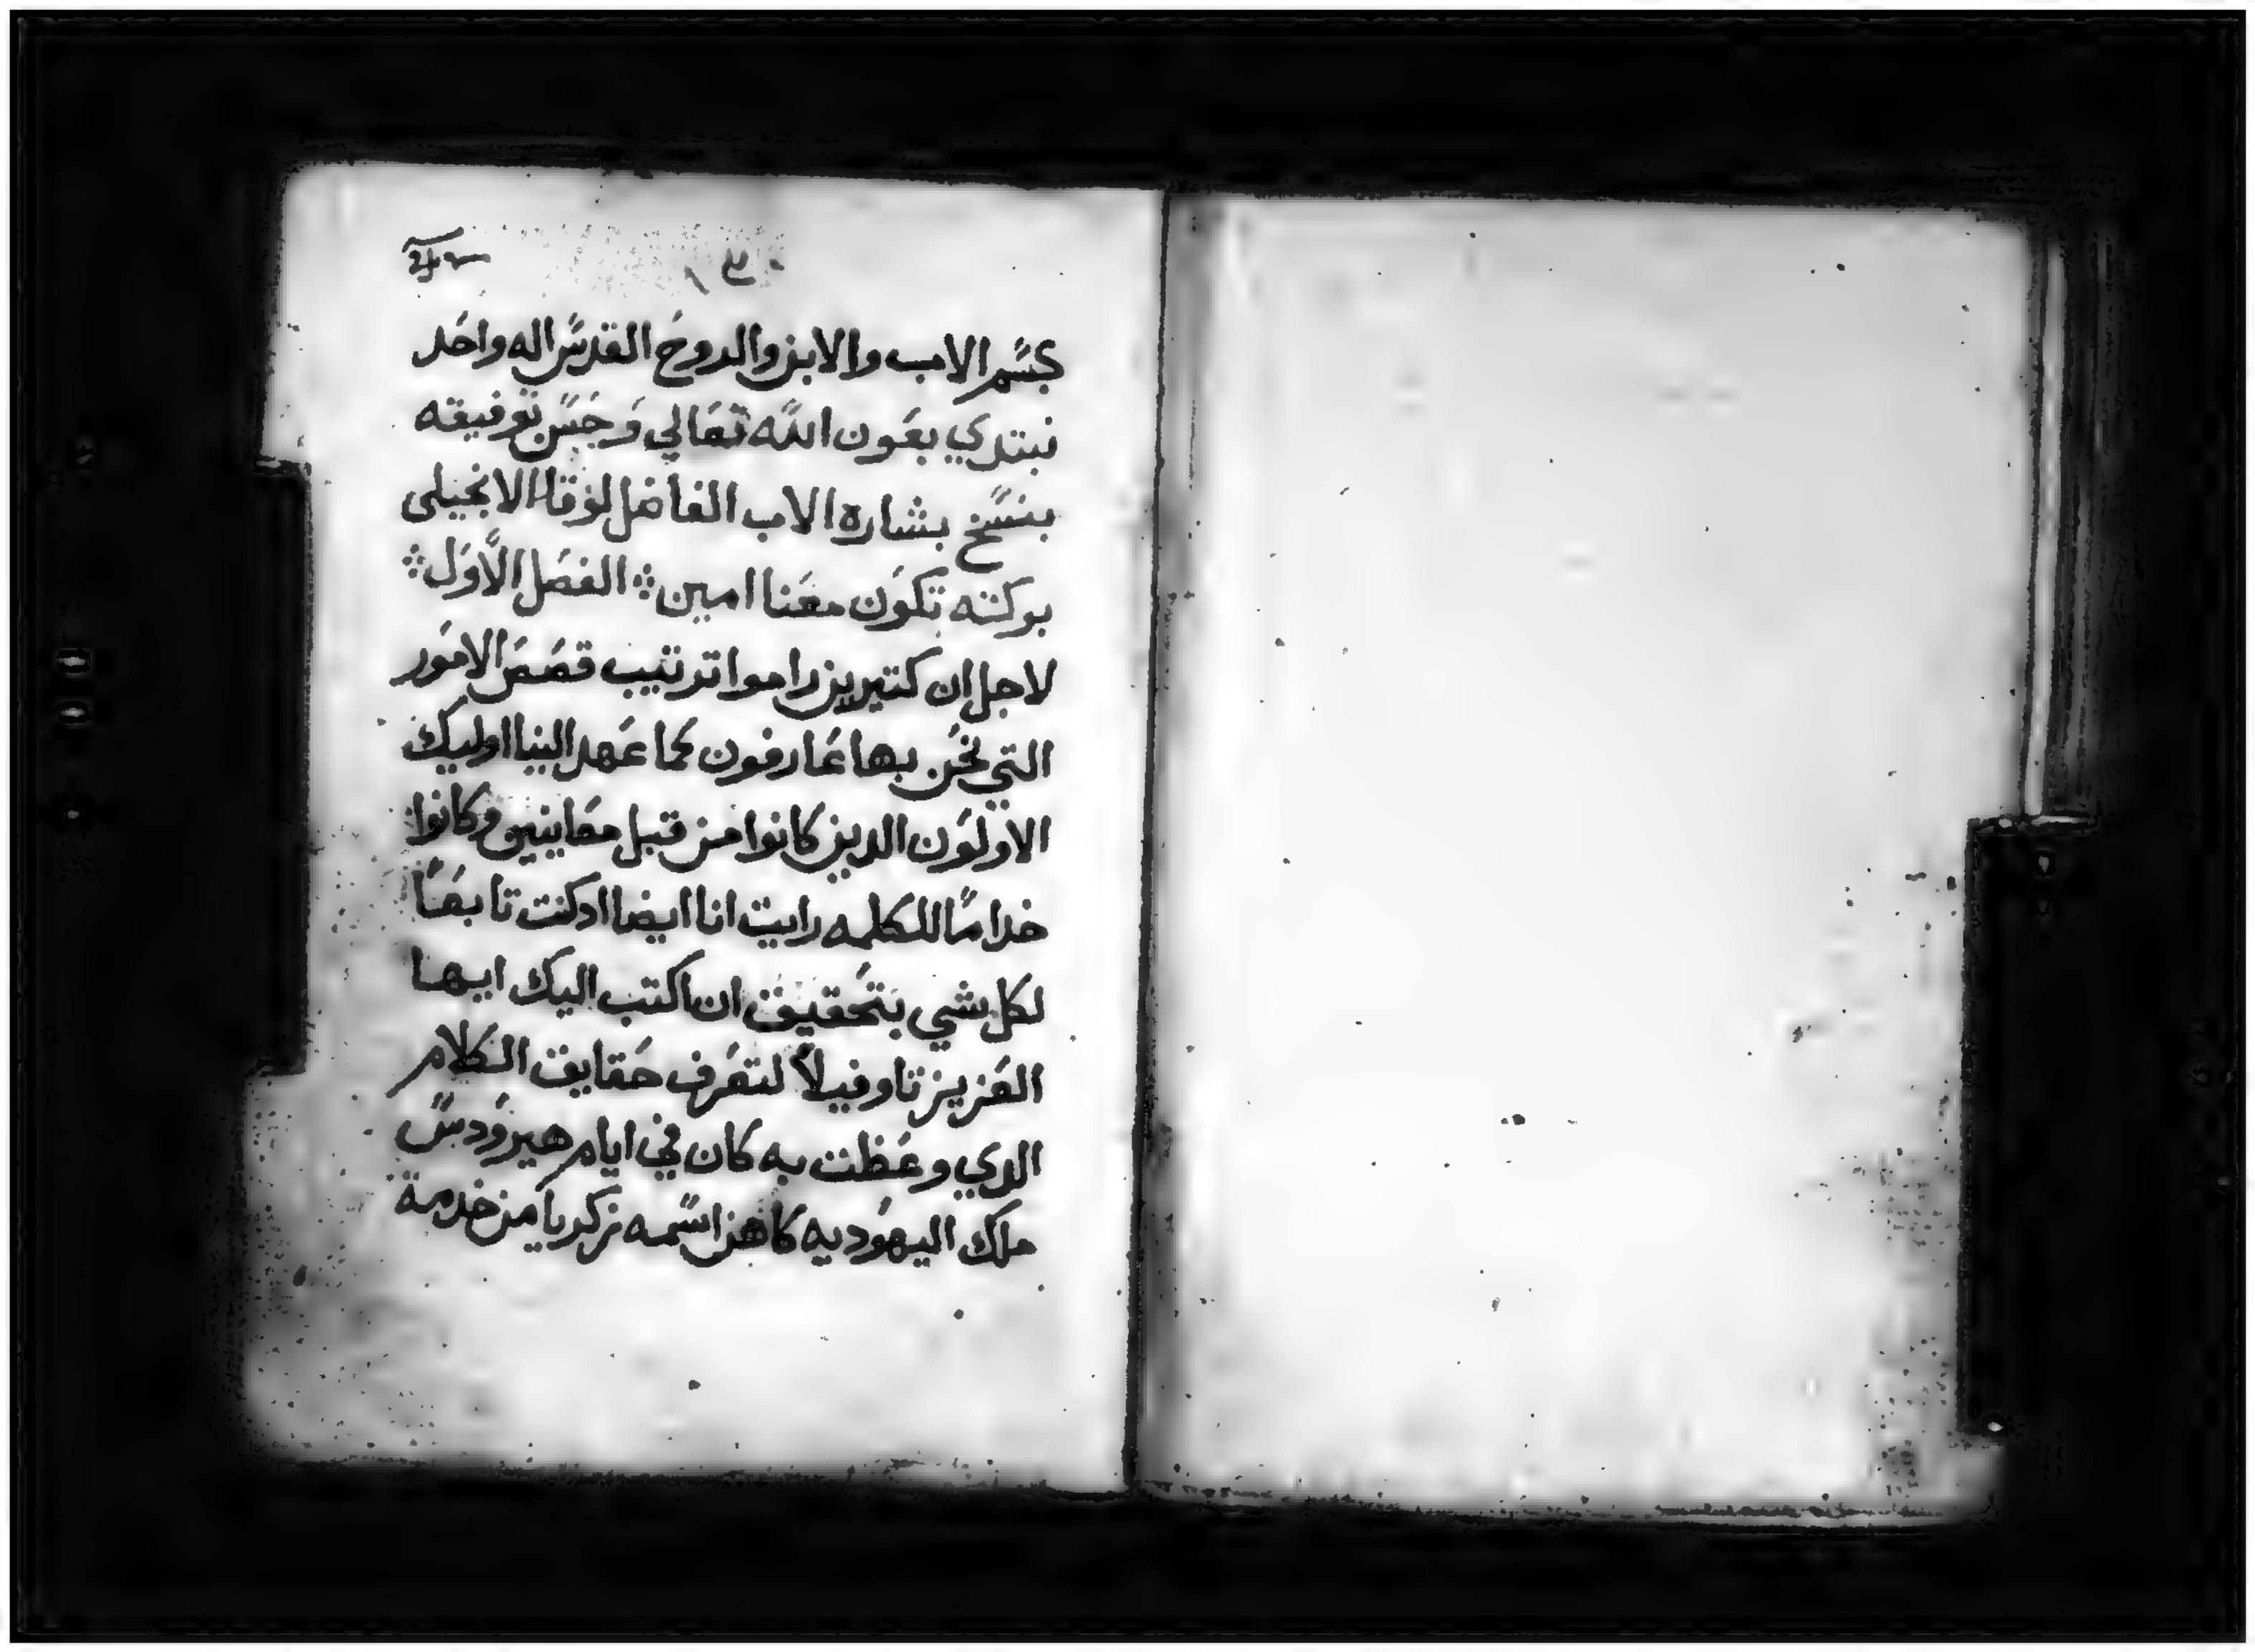 بسم الاب والابن والروح القدس اله واحد
نبتدي بعون الله تعالي وحسن توفيقه
بنسخ بشاره الاب الفاضل لوقا الانجيلى
بركته تكون معنا امين ܀ الفصل الاول ܀
لاجل ان كتيرين راموا ترتيب قصص الامور
التي نحن بها عارفون كما عهد الينا اوليك
الاولون الدين كانوا من قبل معاينين وكانوا
خداما للكلمه رايت انا ايضا ادكنت تابعا
لكل شي بتحقيق ان اكتب اليك ايها
العزيز تاوفيلا لتعرف حقايق الكلام
الدي وعظت به كان في ايام هيرودس
ملك اليهوديه كاهن اسمه زكريا من خدمة